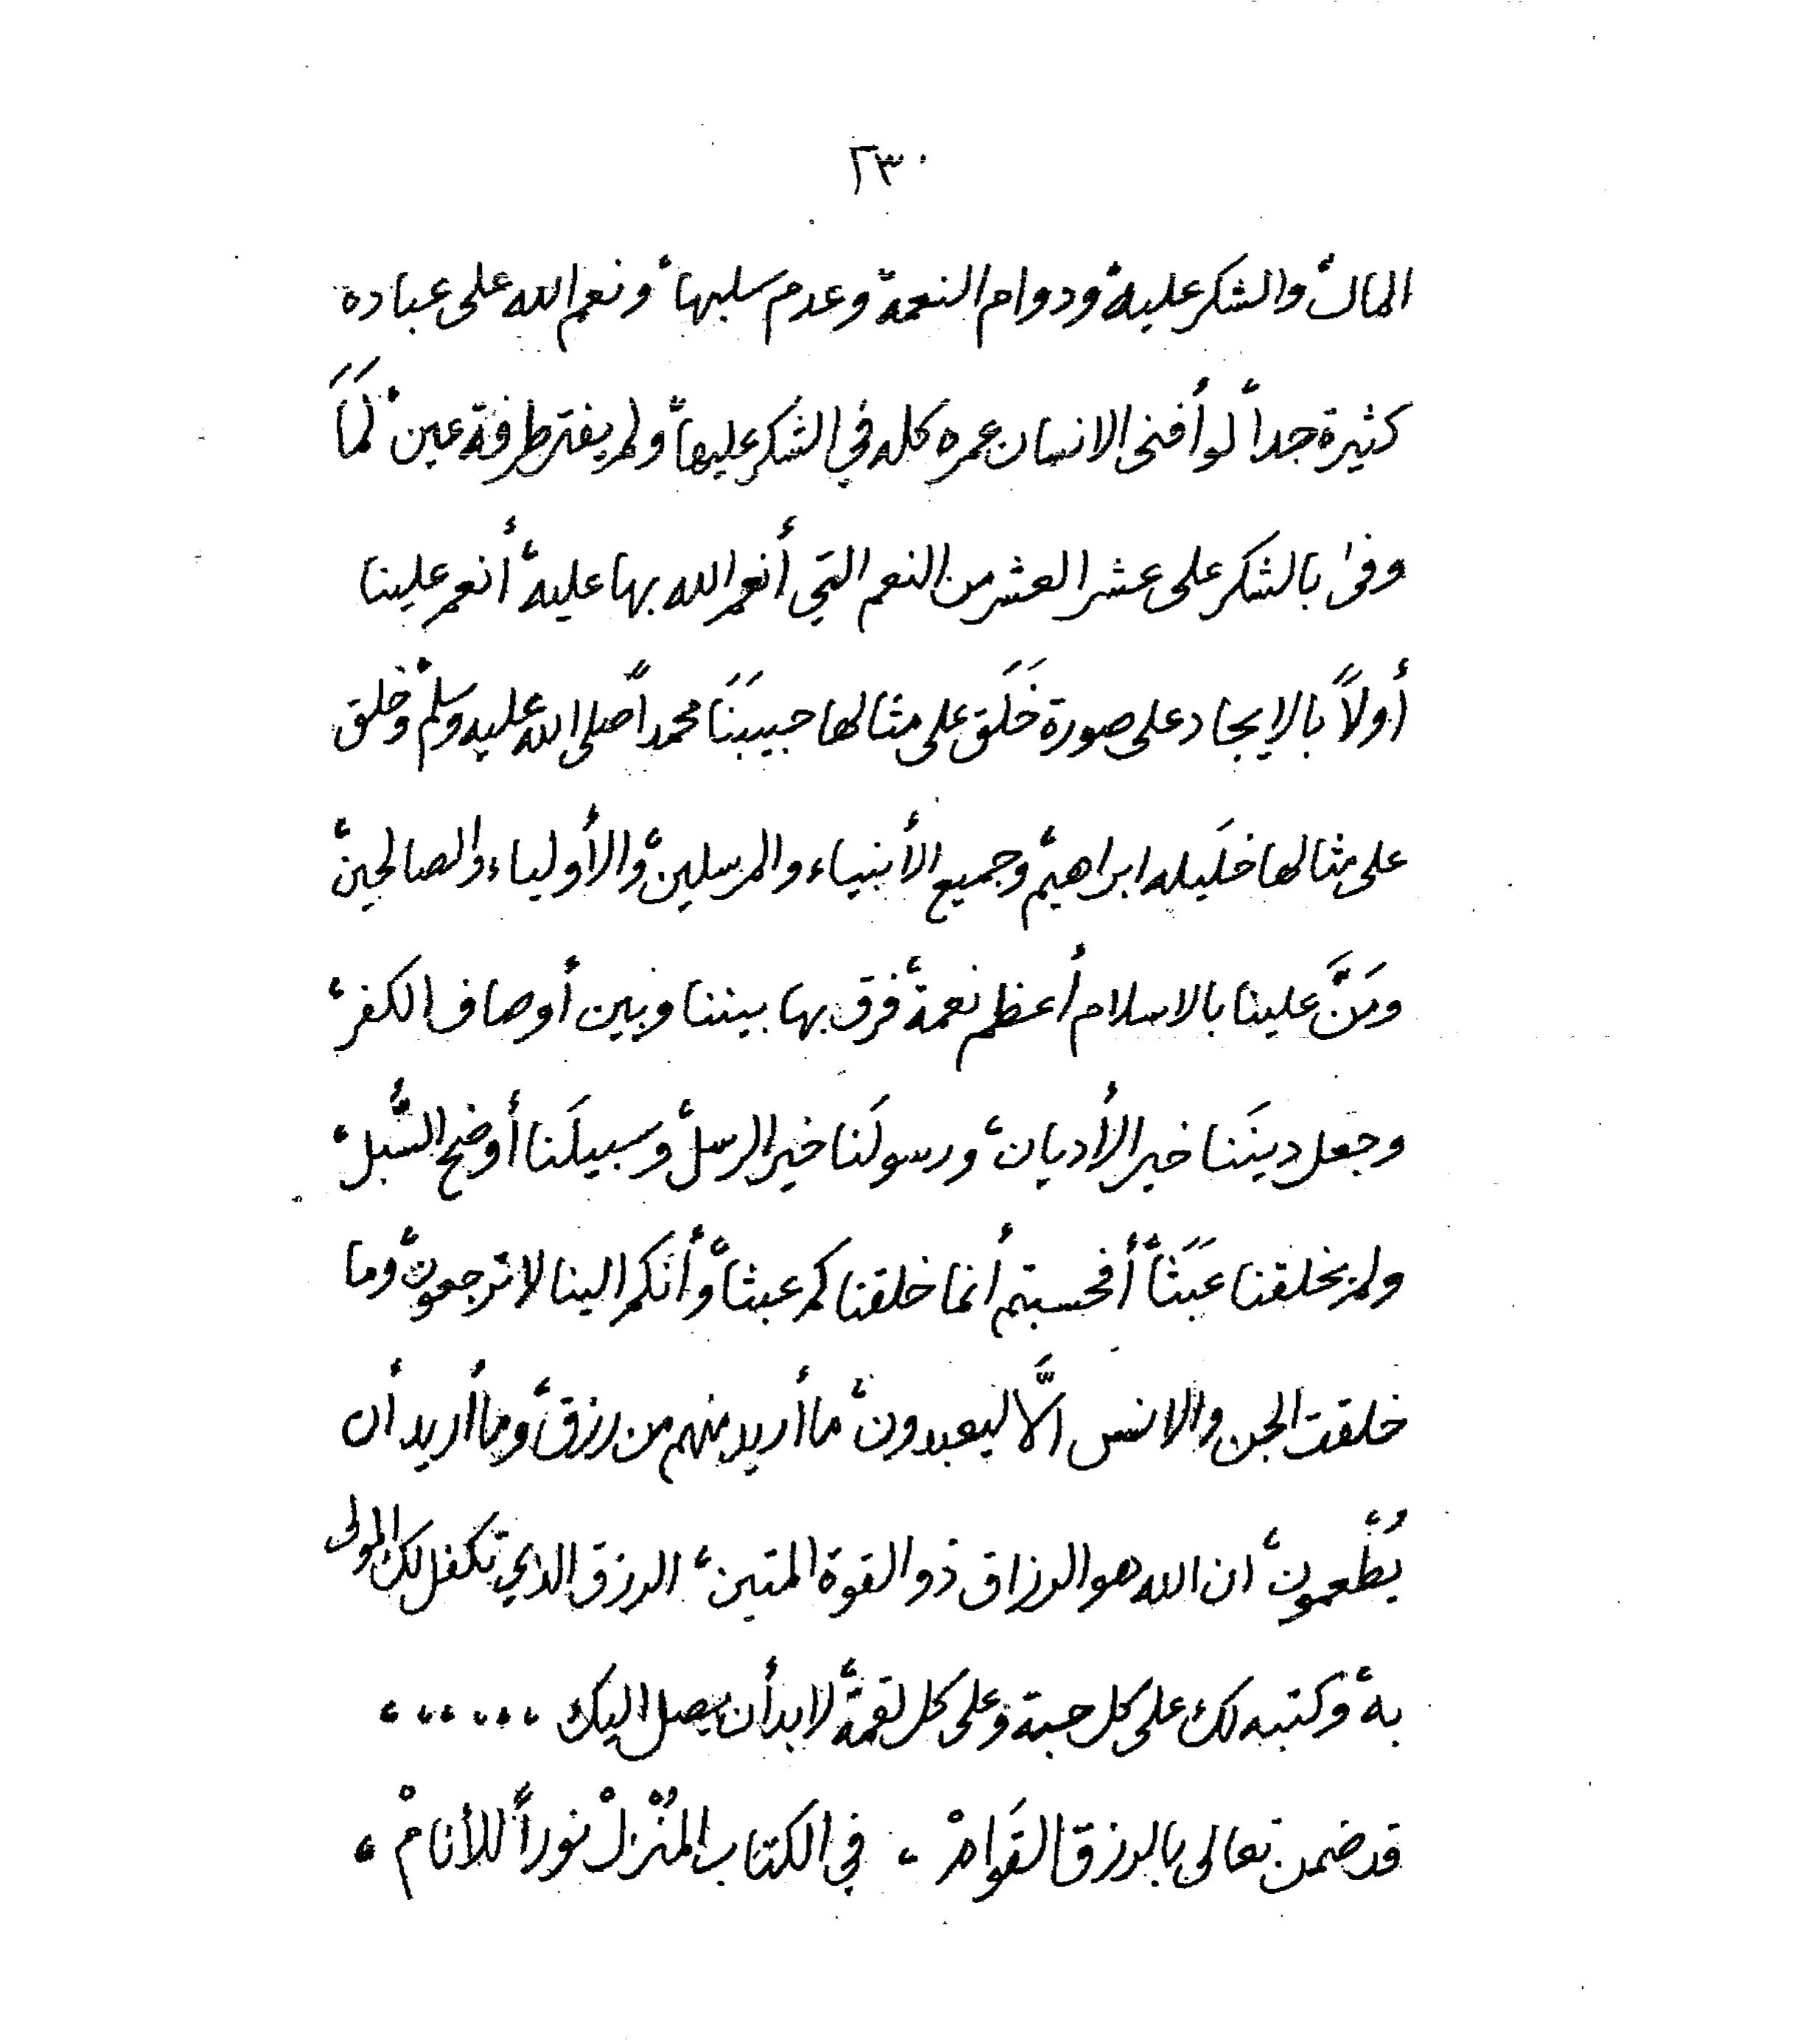 ٢٣٠
المال، والشكر عليه، ودوام النعمة وعدم سلبها، ونعم الله على عباده
كثيرة جداً، لو أفنى الانسان عمره كله في الشكر عليها، ولم يفتر طرفة عين، لَمَا
وفىٰ بالشكر على عشر العشر من النعم التي أنعم الله بها عليه، أنعم علينا
أولاً بالإيجاد على صورة خَلَق على مثالها حبيبَنَا محمداً صلى الله عليه وسلم، وخلق
على مثالها خَليله ابراهيم، وجميع الأنبياء والمرسلين، والأولياء والصالحين،
ومَنَّ علينا بالاسلام أعظم نعمة، فرق بها بيننا وبين أوصاف الكفر،
وجعل دينَنا خير الأديان، ورسولَنا خير الرسل، وسبيلَنا أوضح السُّبل،
ولم يخلقنا عَبَثاً، أفحسبتم أنما خلقناكم عبثاً، وأنكم الينا لا ترجعون، وما
خلقت الجن والانس الاَّ ليعبدون، ما أريد منهم من رزق، وما أريد أن
يُطْعمون، ان الله هو الرزاق ذو القوة المتين، الرزق الذي تكفل لك المولى
به، وكتبه لك على كل حبة، وعلى كل لقمة، لابد أن يصل اليك ،.....،
قد ضمن تعالى بالرزق القَوامْ ، في الكتاب المُنْزلْ نوراً للأنامْ ،